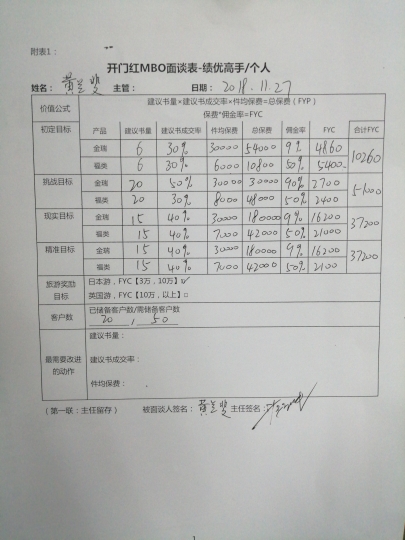 附表1：
开门红MBO面谈表-绩优高手/个人
姓名： 黄兰斐 主管： 日期： 2018.11.27
价值公式 建议书量×建议书成交率×件均保费=总保费（FYP）
保费*佣金率=FYC
初定目标 产品 建议书量 建议书成交率 件均保费 总保费 佣金率 FYC 合计FYC
金瑞 6 30% 30000 54000 9% 4860 10260
福类 6 30% 6000 10800 50% 5400
挑战目标 金瑞 20 50% 30000 30000 90% 2700
福类 20 30% 8000 48000 50% 2400
现实目标 金瑞 15 40% 30000 180000 9% 16200 37200
福类 15 40% 7000 42000 50% 21000
精准目标 金瑞 15 40% 30000 180000 9% 16200 37200
福类 15 40% 7000 42000 50% 2100
旅游奖励目标 日本游，FYC【3万，10万】☑
英国游，FYC【10万，以上】□
客户数 已储备客户数/需储备客户数
20 , 50
最需要改进的动作 建议书量：
建议书成交率：
件均保费：
（第一联：主任留存） 被面谈人签名： 黄兰斐 主任签名：
1